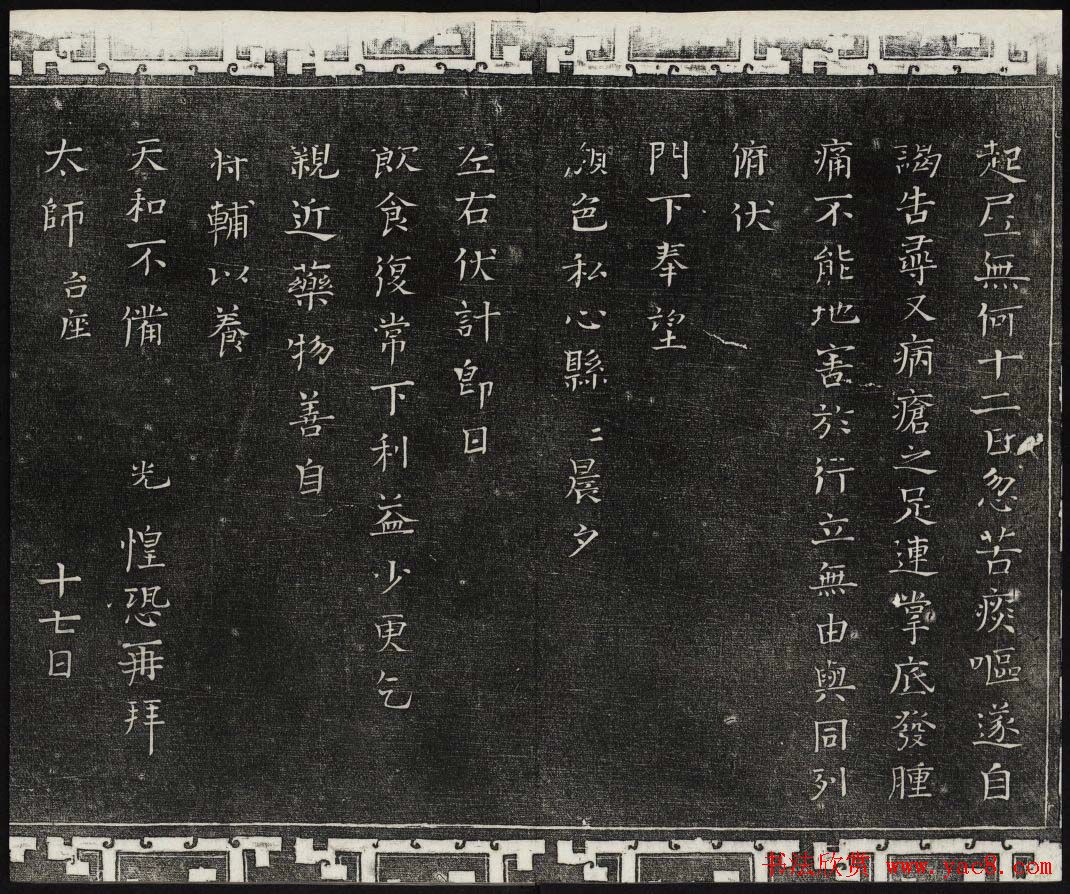 起居無何十二日忽苦痰嘔遂自
謁告尋又病瘡之足連掌底發腫
痛不能地害於行立無由與同列
俯伏
門下奉望
顏色私心縣〻晨夕
左右伏計即日
飲食復常下利益少更乞
親近藥物善自
將輔以養
天和不備 光 惶恐再拜
太師 台座 十七日
书法欣赏 www.yac8.com